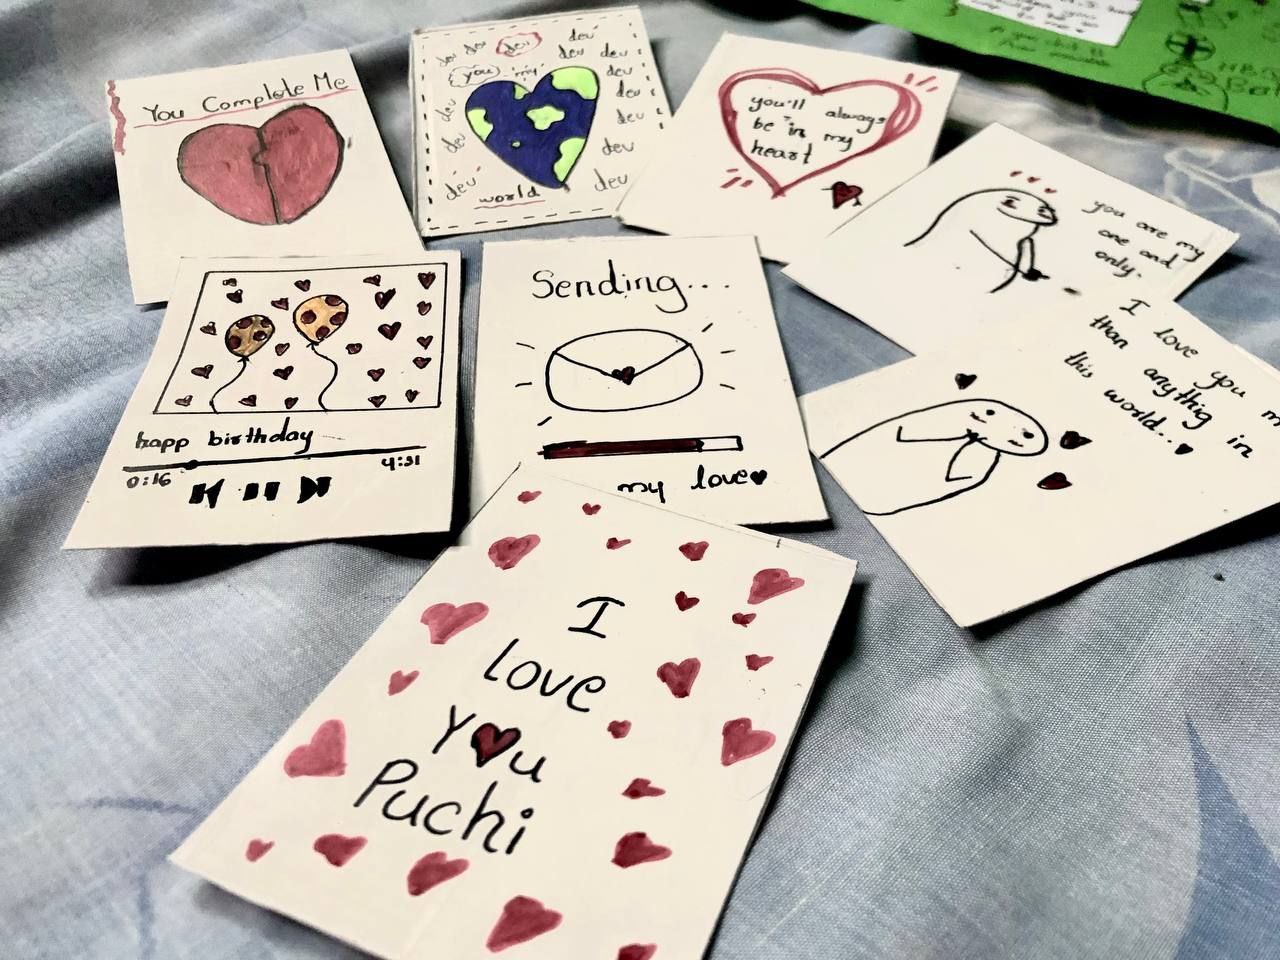 You Complete Me
dev dev dev dev
dev dev dev
you my dev
dev dev
dev dev
dev dev
dev dev
world
you'll always
be in my
heart
you are my
one and
only.
happ birthday
0:16 4:31
Sending...
my love
I love you m
than anythig in
this world...
I
love
You
Puchi